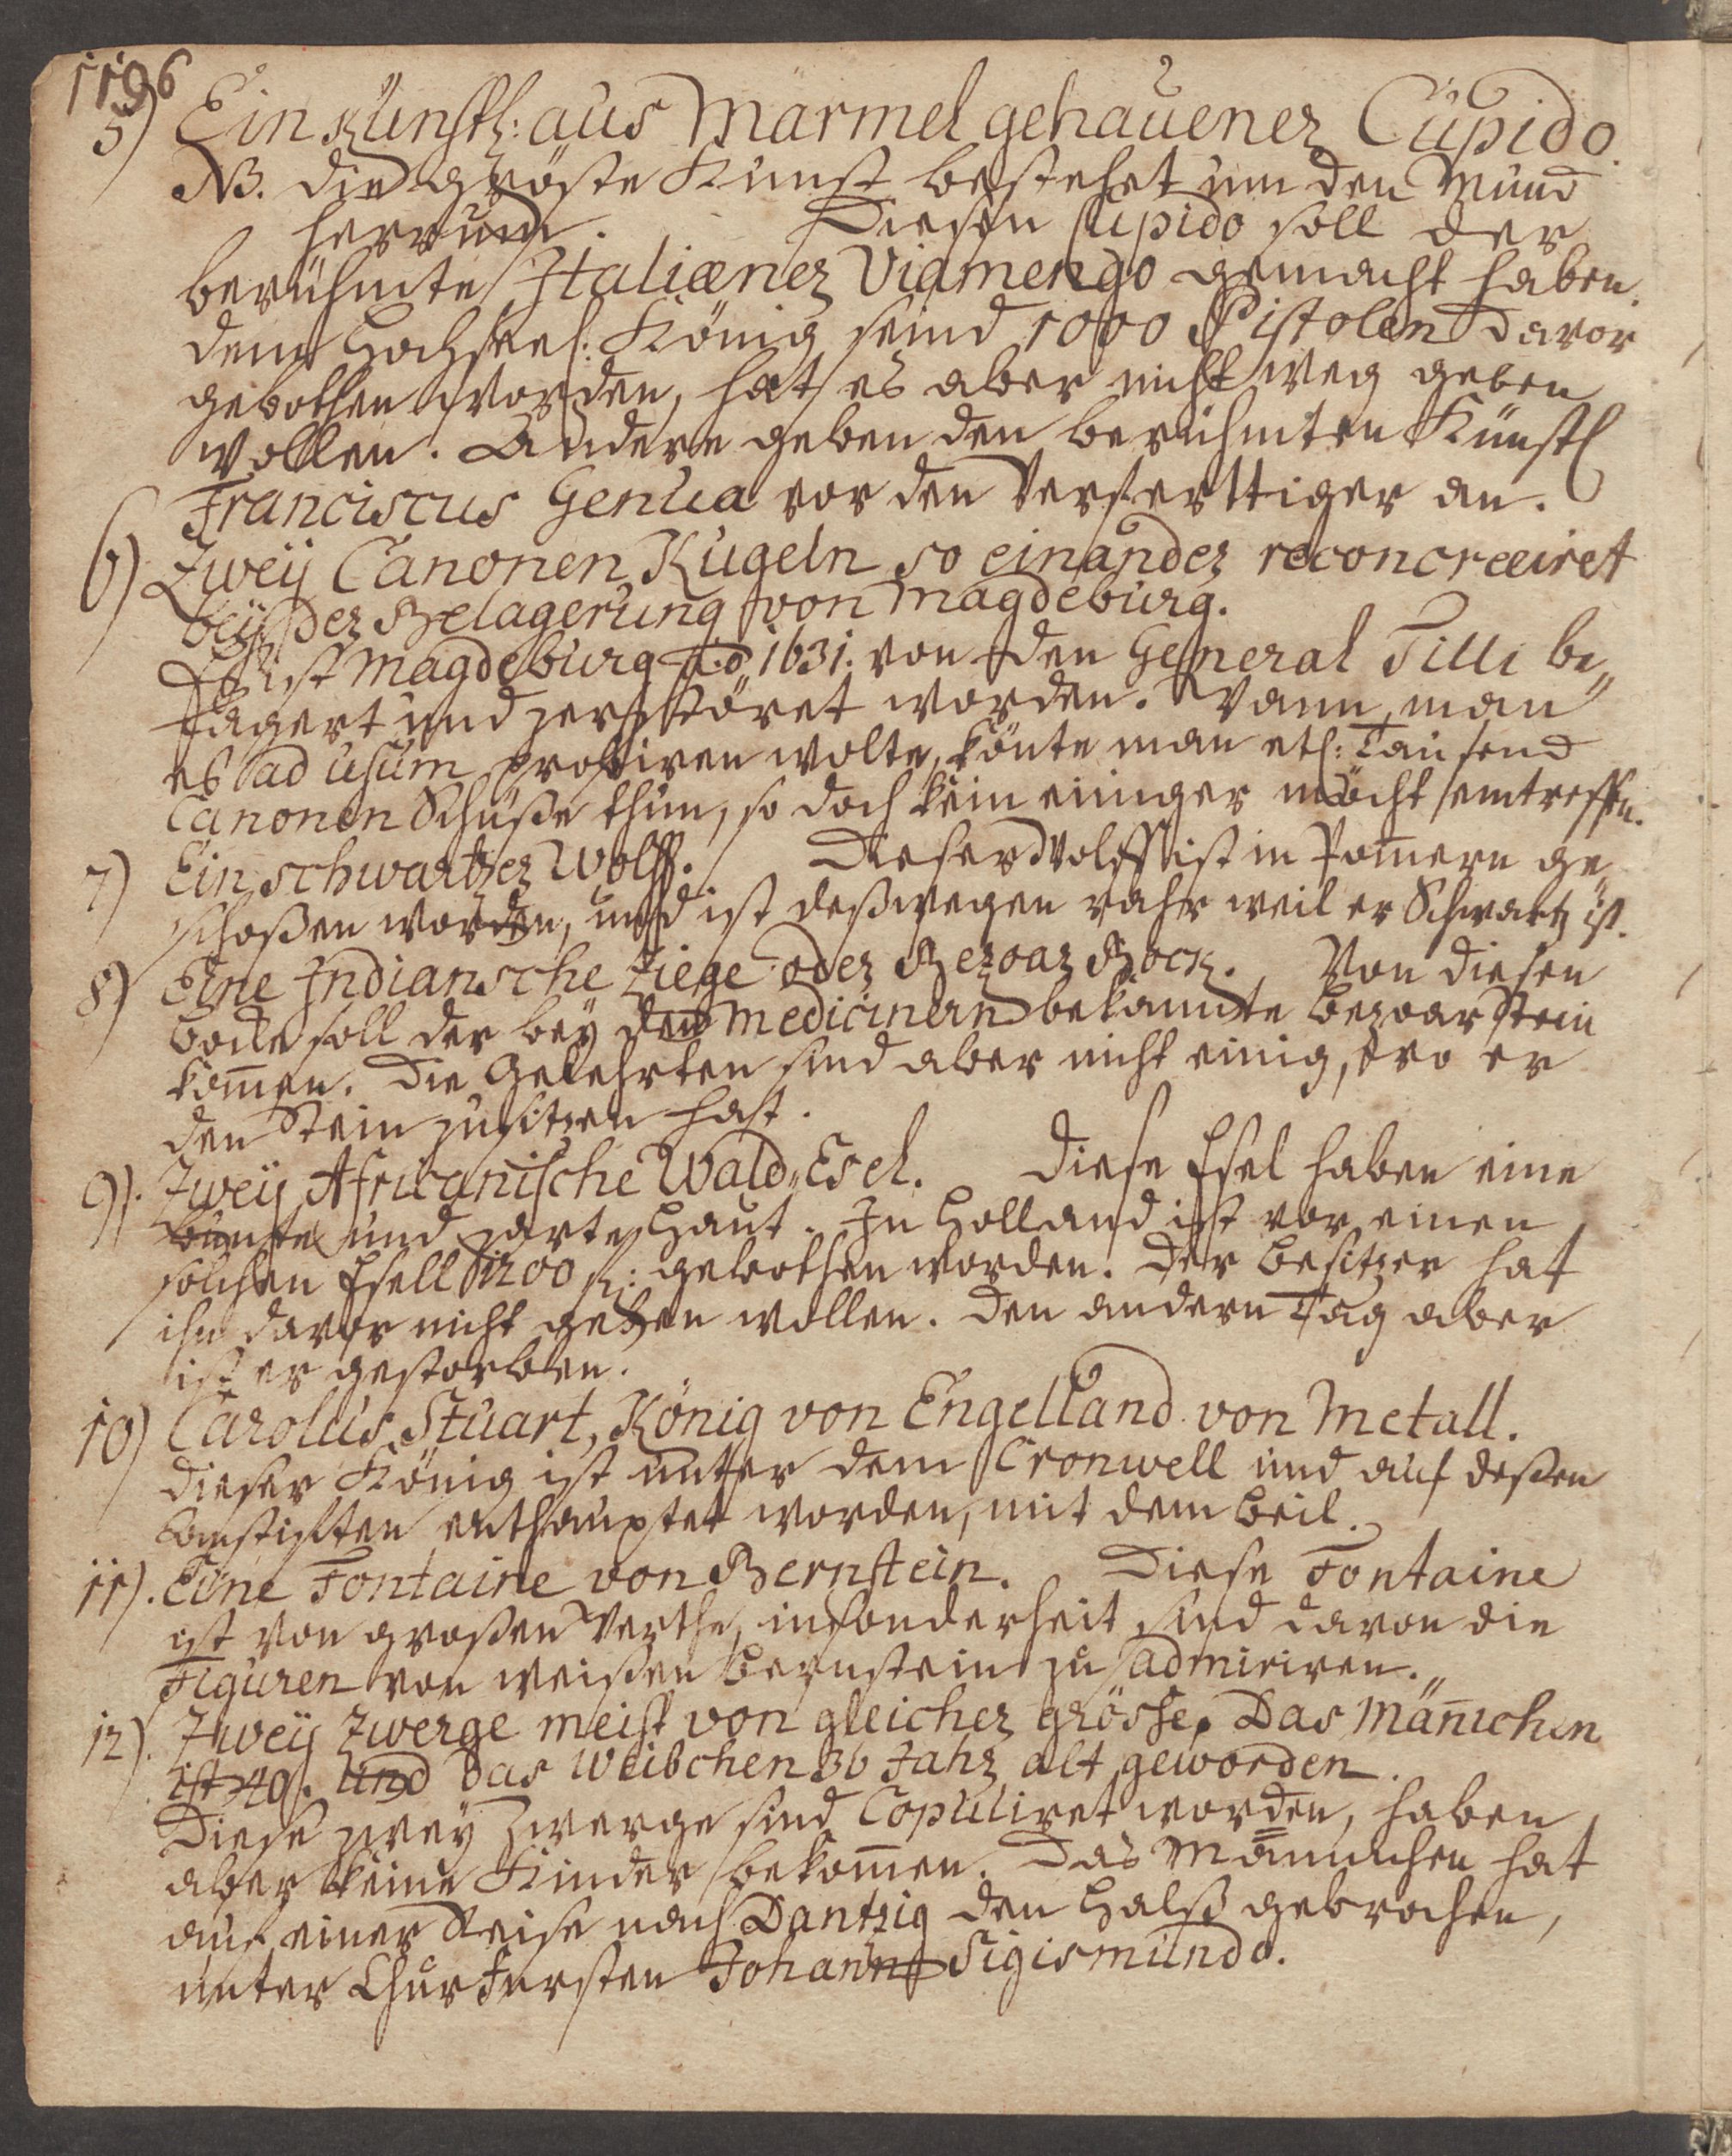 1196
5) Ein Künstl: aus Marmel gehauener Cupido.
NB. die größte Kunst bestehet um den Mund
herrum. Diesen Cupido soll der
berühmte Italiæner Viamengo gemacht haben.
dem Hochseel: König seind 1000 Pistolen davor
gebothen worden, hat es aber nicht weg geben
wollen. Andere geben den berühmten Künstl
Franciscus Genua vor den Verferttiger an.
6) Zweÿ Canonen Kugeln so einander reconcreeiret
beÿ der Belagerung von Magdeburg.
Es ist Magdeburg Ao 1631. von den General Tilli be„
lagert und zerstöret worden. Wann man
es ad usum probiren wolte, könte man etl: Tausend
Canonen Schüße thun, so doch kein einiger möcht eintreffen.
7) Ein schwartzer Wolff. Dieser Wolff ist in Pom̄ern ge
schoßen worden, und ist deßwegen rahr weil er Schwartz ist.
8) Eine Indiansche Ziege oder Bezoar Bock. Von diesen
Bocke soll der bey den Medicinern bekannte Bezoar Stein
kom̄en. Die Gelehrten sind aber nicht einig, wo er
den Stein zu sitzen hat.
9). Zweÿ Africanische Wald„Esel. Diese Esel haben eine
bunte und zarte Haut. In Holland ist vor einen
solchen Esell 1200 fl: gebothen worden. Der Besitzer hat
ihn davor nicht geben wollen. Den andern Tag aber
ist er gestorben.
10) Carolus Stuart, König von Engelland von Metall.
Dieser König ist unter dem Cronwell und auf deßen
Anstifften enthauptet worden, mit dem Beil.
11). Eine Fontaine von Bernstein. Diese Fontaine
ist von großen Werthe, insonderheit sind davon die
Figuren von weißen Bernstein zu admiriren.
12). Zweÿ Zwerge meist von gleicher grösse. Das Män̄ichen
ist 40. und das Weibchen 36 Jahr alt geworden.
Diese zwey Zwerge sind Copuliret worden, haben
aber keine Kinder bekom̄en. Das Männchen hat
auf einer Reise nach Dantzig den Halß gebrochen,
unter Churfursten Johann Sigismundo.